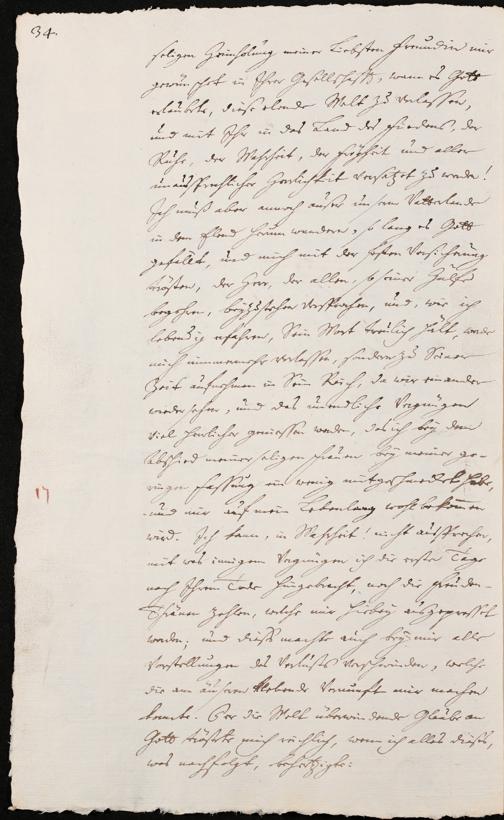 34.
seligen Heimholung meiner Liebsten Freundin mir
gewünschet in Ihrer Gesellschafft, wenn es Gott
erlaubte, diese elende Welt zu verlassen,
und mit Ihr in das Land des Friedens, der
Ruhe, der Wahrheit, der Freyheit und aller
unaussprechlicher Herrlichkeit versetzet zu werden!
Ich muß aber annoch außer unserm Vatterlande
in dem Elend herum wandern, so lang es Gott
gefällt, und mich mit der festen Versicherung
trösten, der Herr, der allen, so seiner Hülfe
begehren, beyzustehen versprochen, und, wie ich
lebendig erfahren, Sein Wort treulich hält, werde
mich nimmermehr verlassen, sondern zu Seiner
Zeit aufnehmen in Sein Reich, da wir einander
wiedersehen, und das unendliche Vergnügen
viel herrlicher geniessen werden, das ich bey dem
Abschied meiner seligen Frauen bey meiner ge-
ringen Fassung ein wenig mitgeschmecket habe,
und mir auf mein Lebenlang wohl bekommen
17
wird. Ich kann, in Wahrheit! nicht aussprechen,
mit was innigem Vergnügen ich die erste Tage
nach Ihrem Tode hingebracht, noch die Freuden-
Thränen zehlen, welche mir hiebey ausgepresset
worden; und dieses machte auch bey mir alle
Vorstellungen des Verlusts verschwinden, welche
die am äußern klebende Vernunft mir machen
konnte. Der die Welt überwindende Glaube an
Gott tröstete mich reichlich, wenn ich alles dieses,
was nachfolgt, beherzigte: